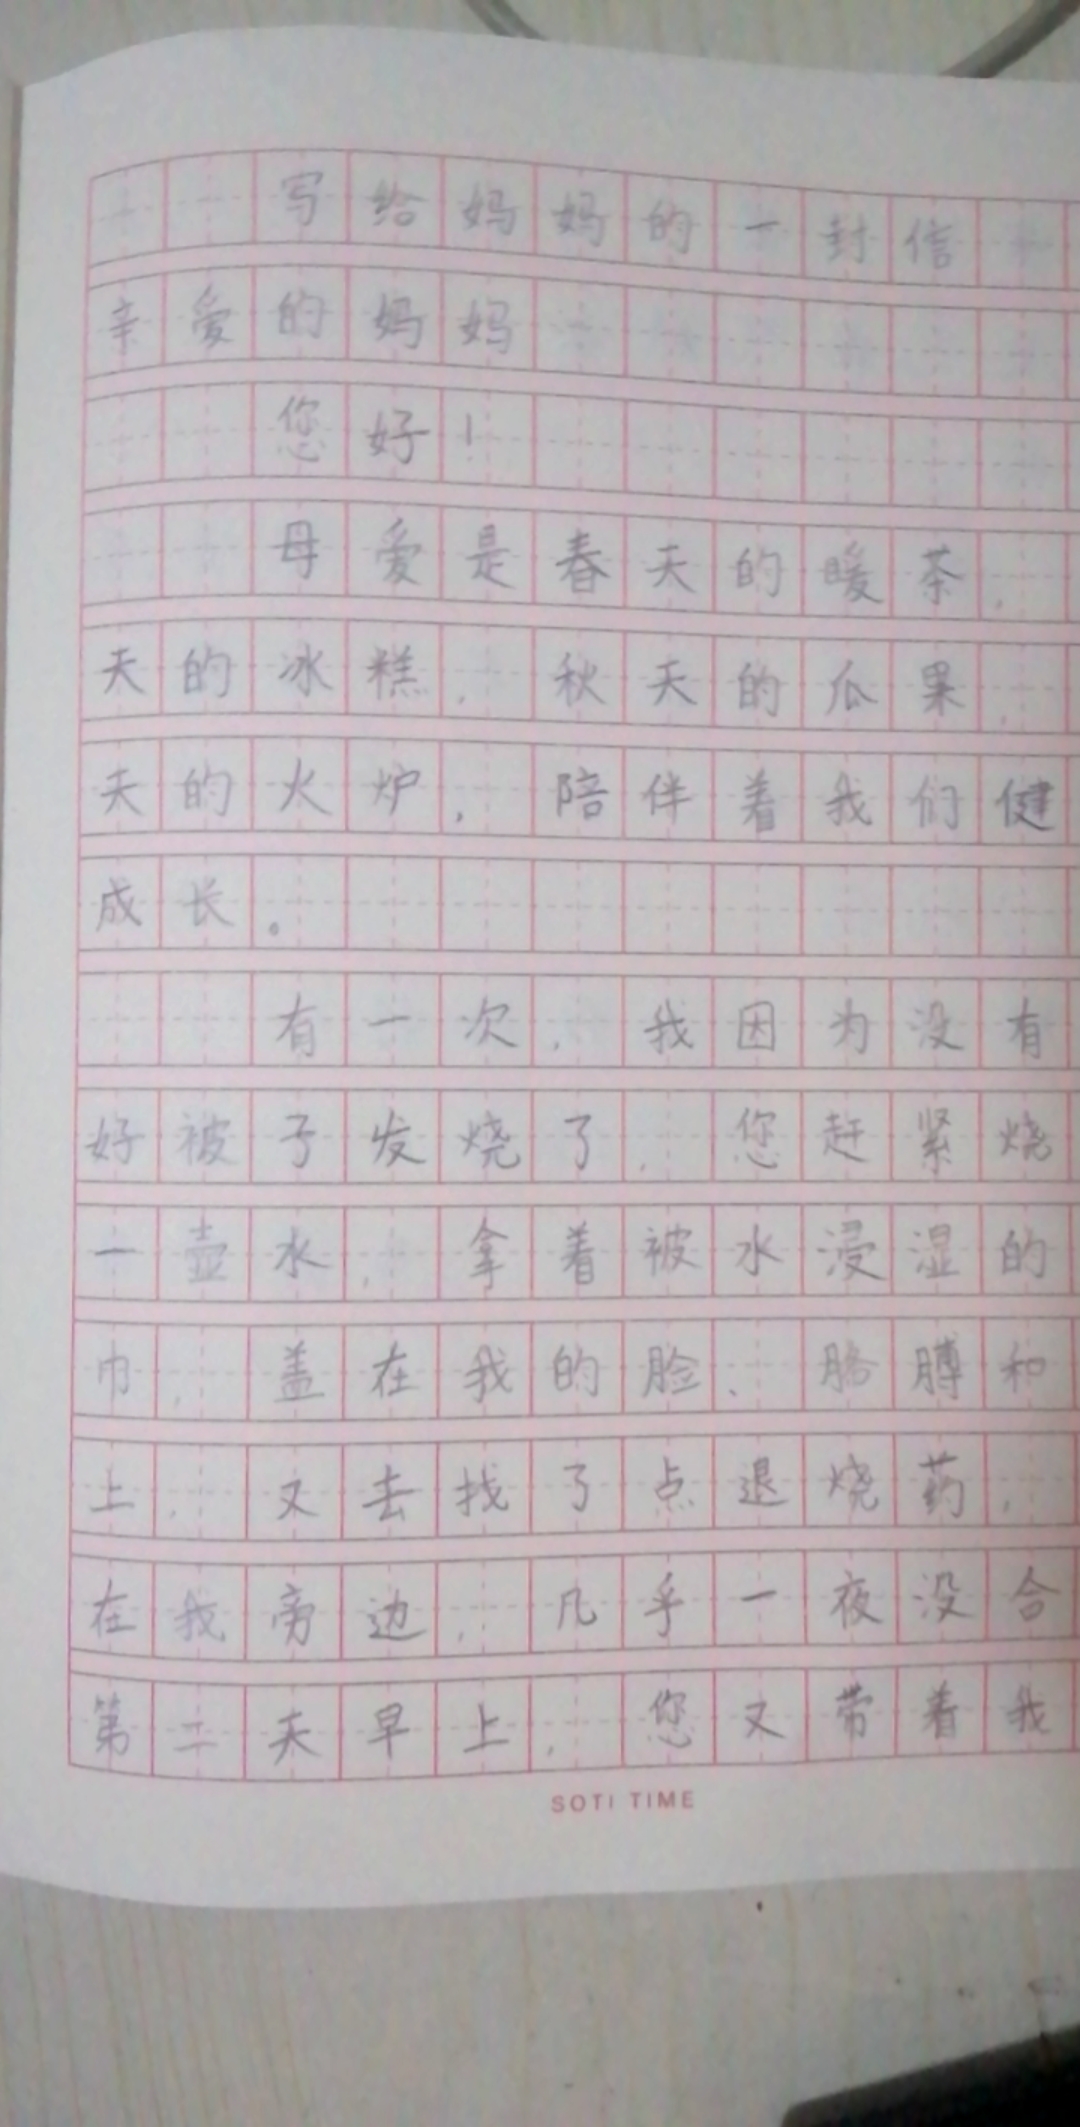 写给妈妈的一封信
亲爱的妈妈
您好！
母爱是春天的暖茶，
天的冰糕，秋天的瓜果，
天的火炉，陪伴着我们健
成长。
有一次，我因为没有
好被子发烧了，您赶紧烧
一壶水，拿着被水浸湿的
巾，盖在我的脸、胳膊和
上，又去找了点退烧药，
在我旁边，几乎一夜没合
第二天早上，您又带着我
SOTI TIME